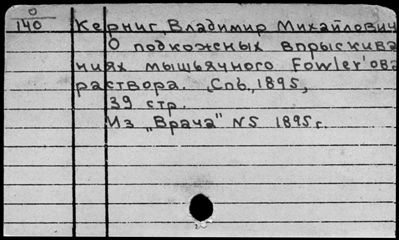 0
140
Керниг, Владимир Михайлович
О подкожных впрыскива
ниях мышьячного Fowler'ова
раствора. Спб., 1895,
39 стр.
Из „Врача" N5 1895 г.